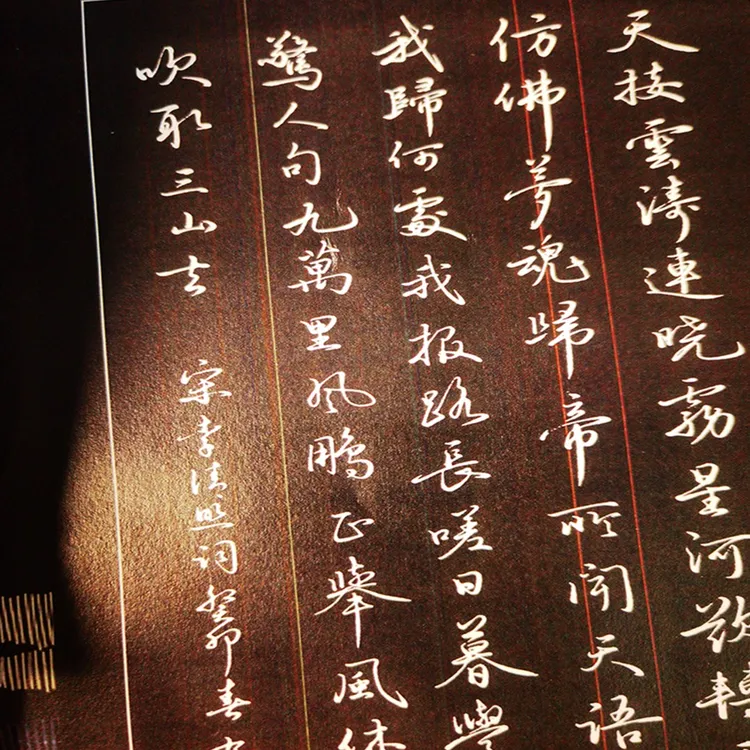 天接雲涛連晓霧星河欲轉
仿佛夢魂歸帝所聞天語
我歸何處我报路長嗟日暮學
驚人句九萬里风鹏正舉風休
吹取三山去 宋李清照词癸卯春